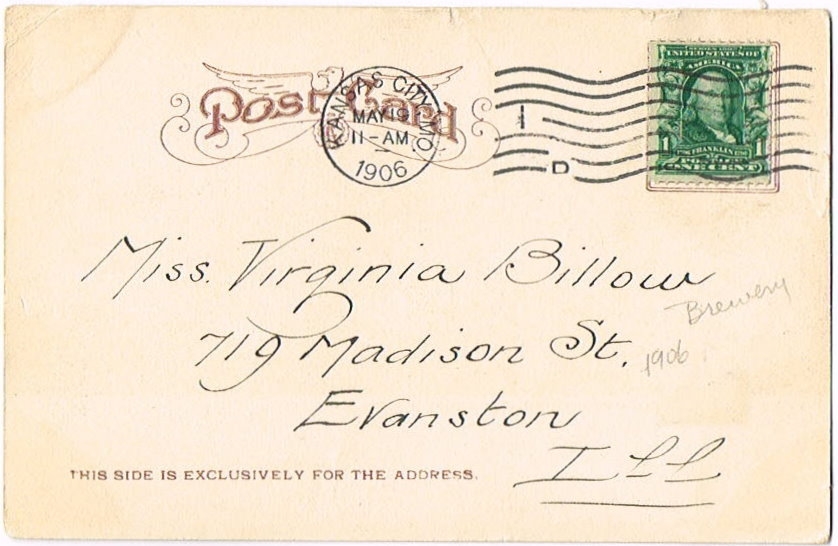 Post Card
KANSAS CITY, MO.
MAY 19
11-AM
1906
1
D
SERIES 1902
UNITED STATES OF
AMERICA
FRANKLIN
1 1
ONE CENT
Miss. Virginia Billow
Brewery
719 Madison St.
1906.
Evanston
Ill
THIS SIDE IS EXCLUSIVELY FOR THE ADDRESS.